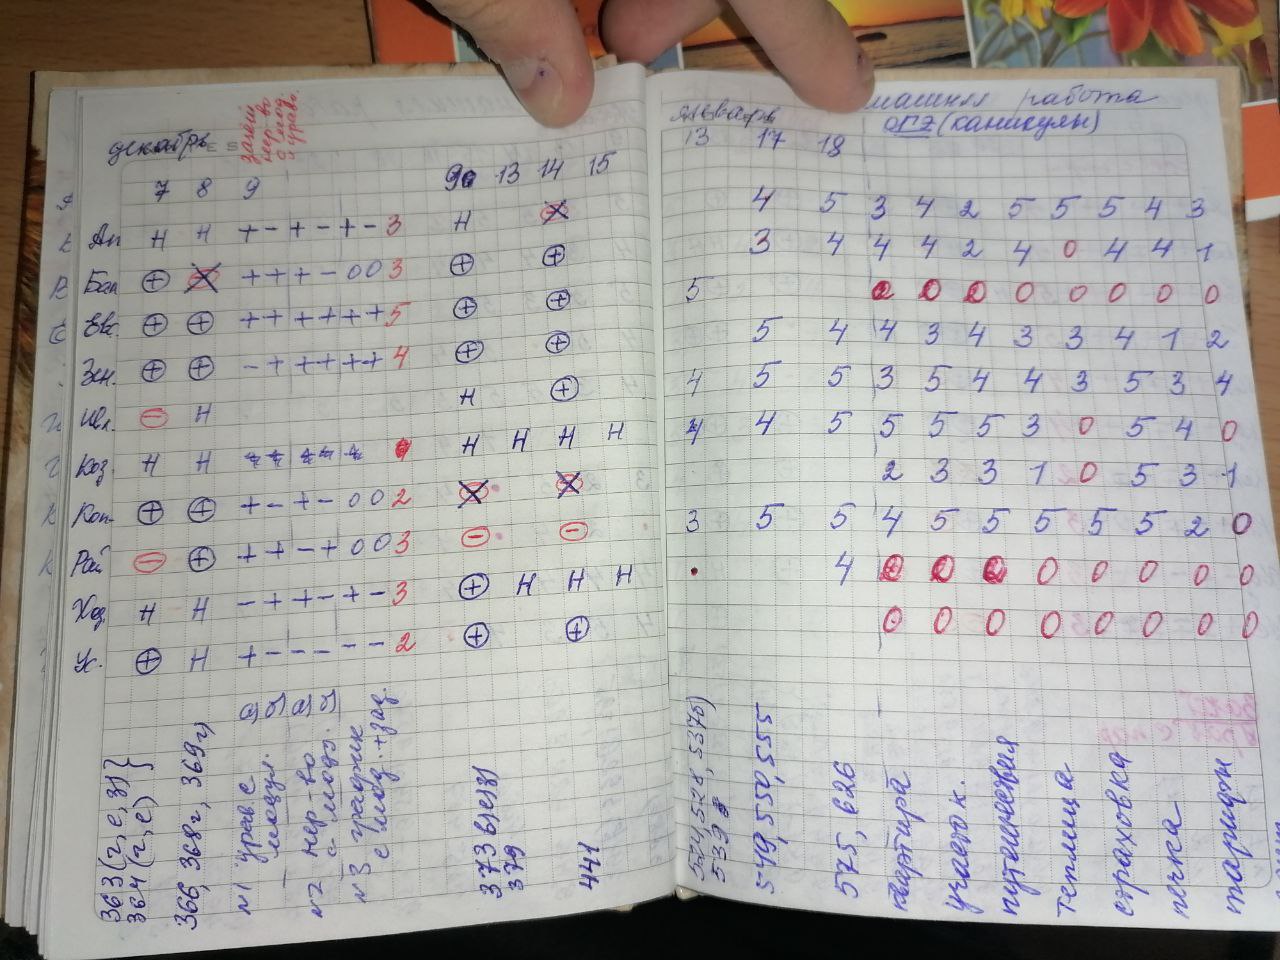 декабрь
зачёт
нер-во
с мод.
и уравн.
7 8 9 9 13 14 15
Ап Н Н + - + - + - 3 Н
Бал + + + + - 0 0 3 + +
Евс. + + + + + + + + 5 + +
Зен. + + - + + + + + 4 + +
Ивл. - Н Н +
Коз. Н Н Н Н Н Н
Коп. + + + - + - 0 0 2
Рай - + + + - + 0 0 3 - -
Ход Н Н - + + - + - 3 + Н Н Н
Ж. + Н + - - - - - 2 + +
а) б) а) б)
363 (г, е, з)
364 (г, е)
366, 368г, 369г
№1 уравн с модул.
№2 нер-во с модул.
№3 график с мод. + зад.
373 в)е)з)
379
441
январь
13 17 18
домашняя работа
ОГЭ (каникулы)
4 5 3 4 2 5 5 5 4 3
3 4 4 4 2 4 0 4 4 1
5 0 0 0 0 0 0 0 0
5 4 4 3 4 3 3 4 1 2
4 5 5 3 5 4 4 3 5 3 4
4 4 5 5 5 5 3 0 5 4 0
2 3 3 1 0 5 3 1
3 5 5 4 5 5 5 5 5 2 0
4 0 0 0 0 0 0 0 0
0 0 0 0 0 0 0 0
524, 528, 537б)
539
549, 550, 555
575, 626
квартира
участок.
путешествия
теплица
страховка
печка
тарифы